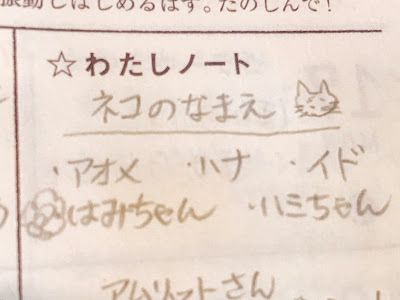 振動しはじめるはず。たのしんで!
☆わたしノート
ネコのなまえ
・アオメ ・ハナ ・イド
はみちゃん ・ハミちゃん
アムリットさん